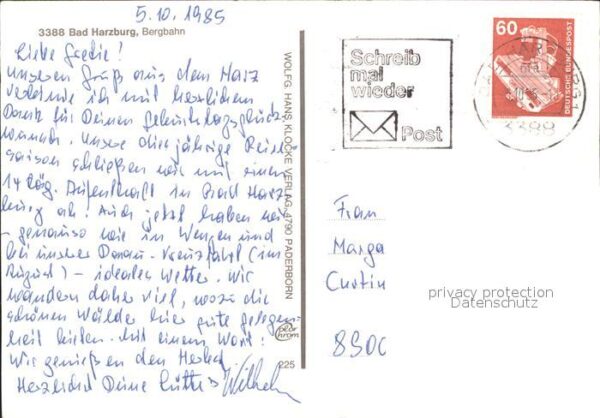 5.10.1985
3388 Bad Harzburg, Bergbahn
Liebe
Unseren Gruß aus dem Harz
verbinde ich mit herzlichem
Dank für Deinen Geburtstagsglück-
wunsch. Unsere diesjährige Reise-
saison schließen wir mit einem
14 täg. Aufenthalt in Bad Harz-
burg ab. Auch jetzt haben wir
- genauso wie in Wengen und
bei unserer Donau-Kreuzfahrt (im
August) - ideales Wetter. Wir
wandern daher viel, wozu die
schönen Wälder hier gute Gelegen-
heit bieten. Mit einem Wort:
Wir genießen den Herbst
Herzlichst Deine
Wilhelm
WOLFG. HANS KLOCKE VERLAG, 4790 PADERBORN
225
Schreib
mal
wieder
Post
60
DEUTSCHE BUNDESPOST
3388
Frau
Marga
Curtin
privacy protection
Datenschutz
8900